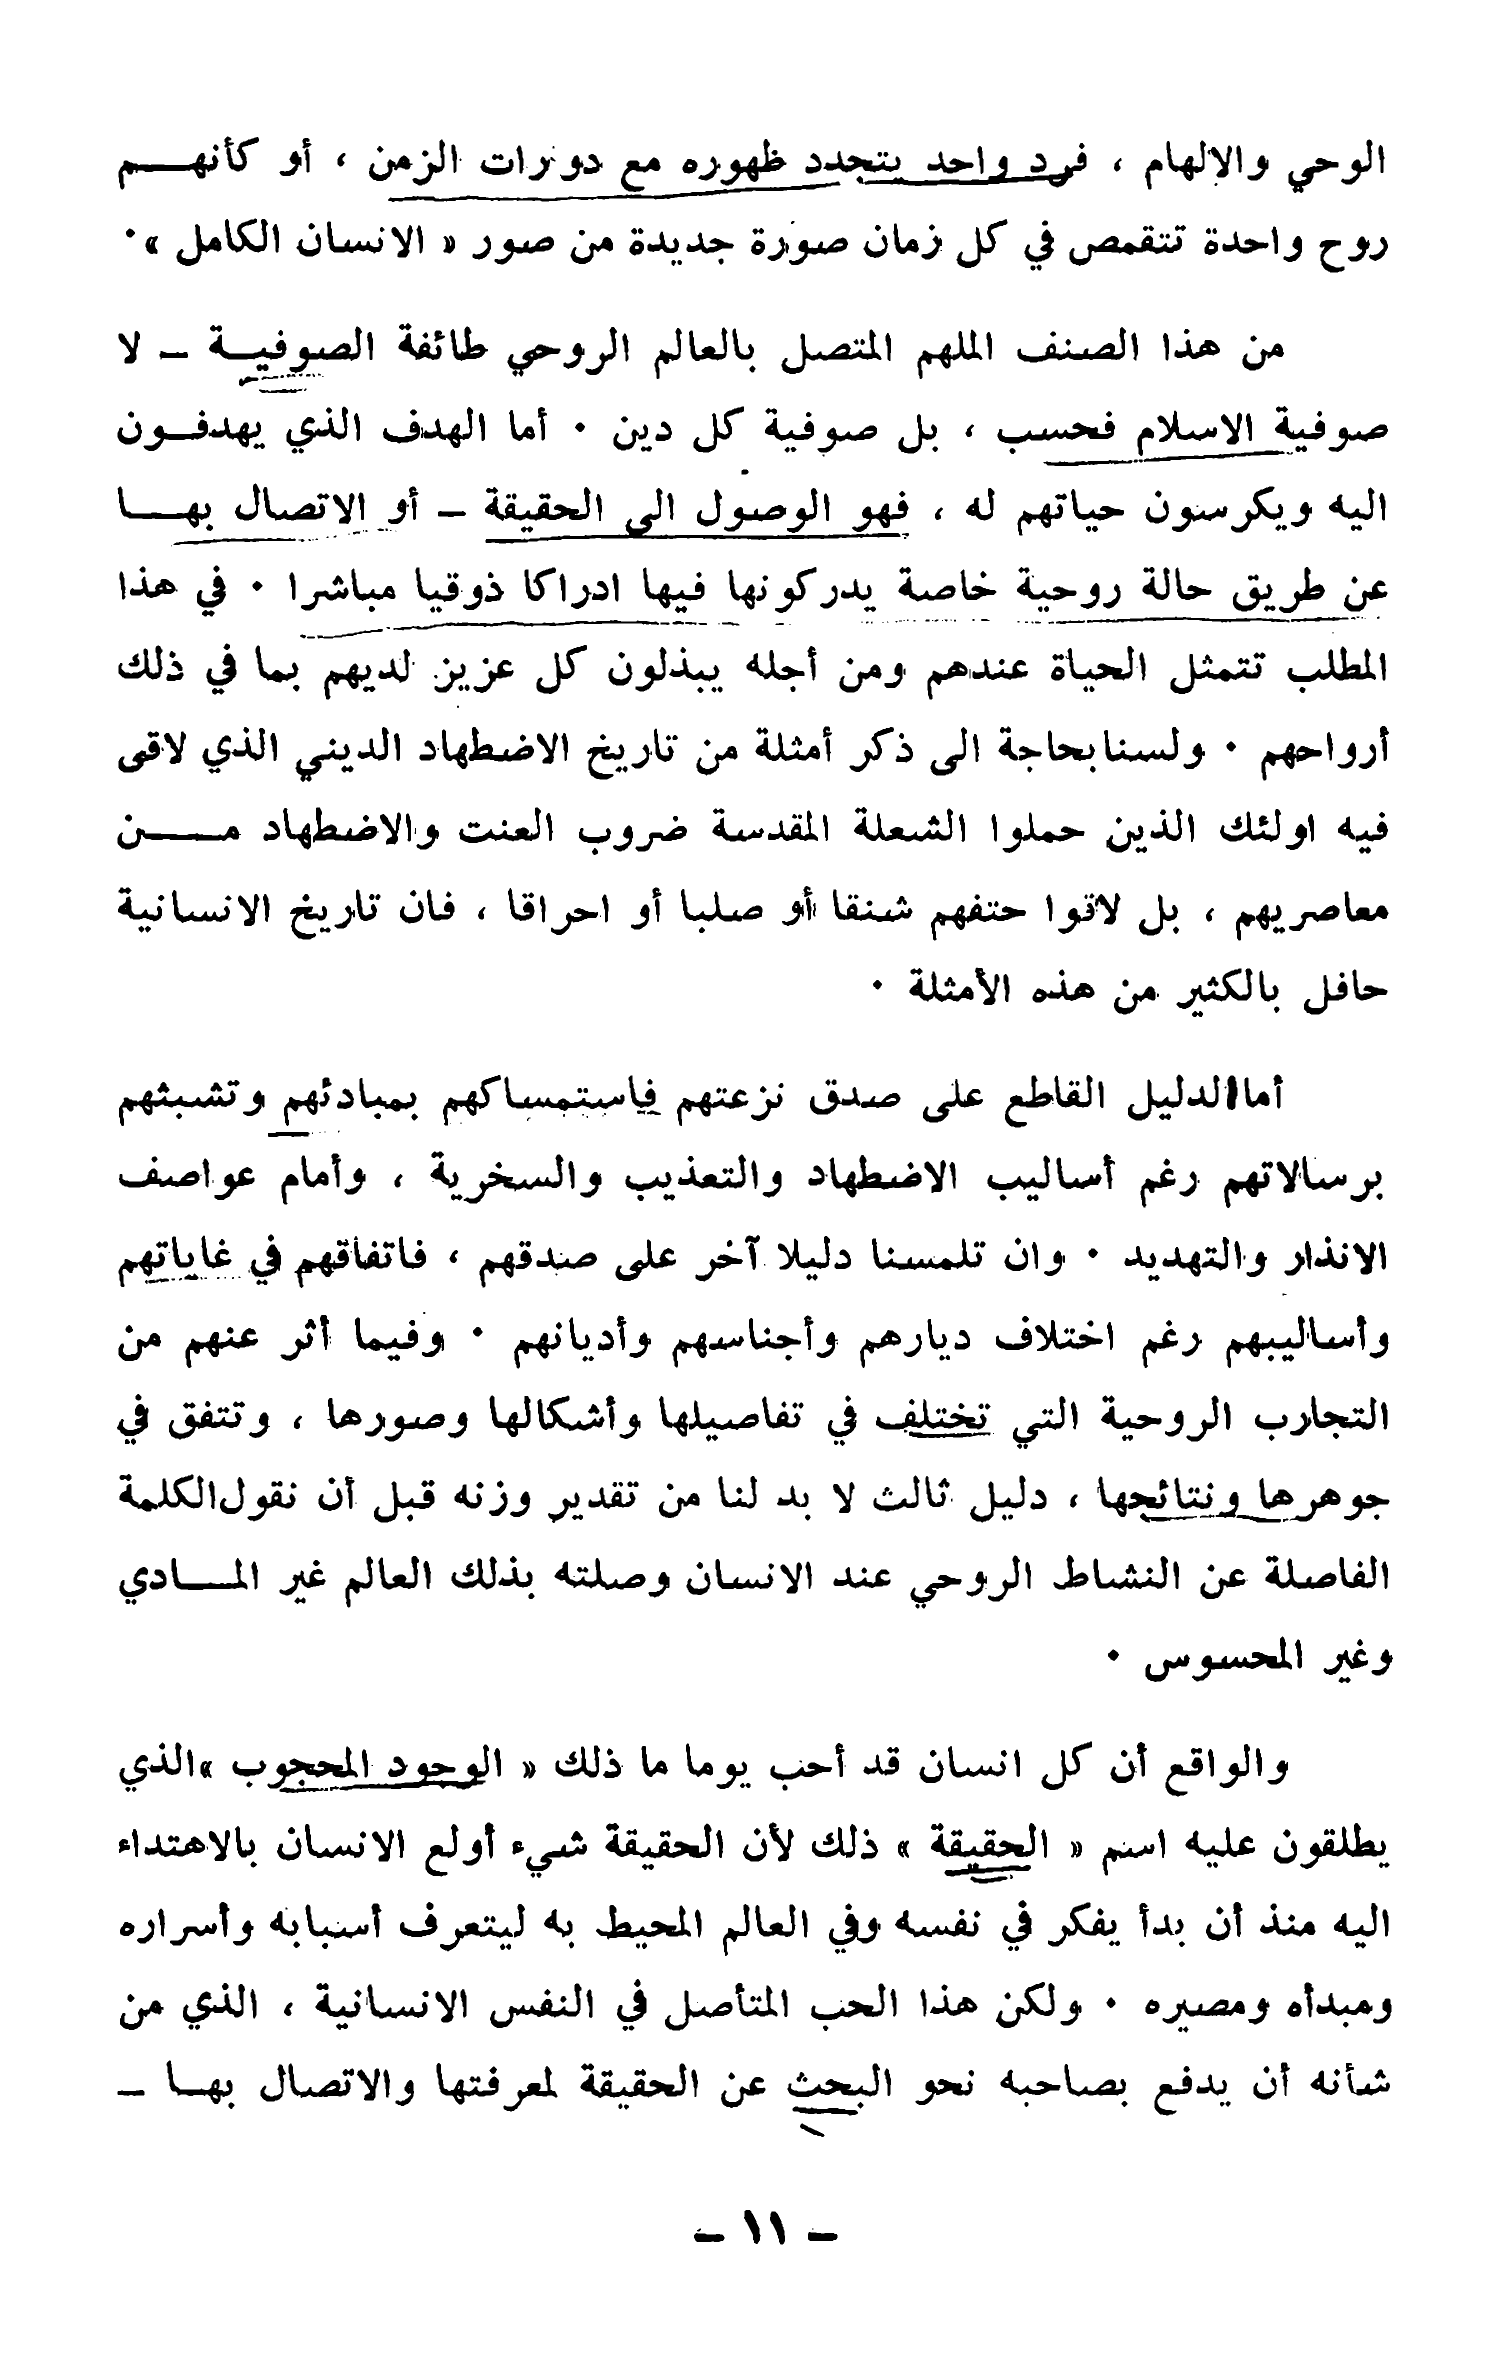 الوحي والإلهام ، فرد واحد يتجدد ظهوره مع دورات الزمن ، أو كأنهم
روح واحدة تتقمص في كل زمان صورة جديدة من صور « الانسان الكامل » ٠
من هذا الصنف الملهم المتصل بالعالم الروحي طائفة الصوفية – لا
صوفية الاسلام فحسب ، بل صوفية كل دين ٠ أما الهدف الذي يهدفون
اليه ويكرسون حياتهم له ، فهو الوصول الى الحقيقة – أو الاتصال بها
عن طريق حالة روحية خاصة يدركونها فيها ادراكا ذوقيا مباشرا ٠ في هذا
المطلب تتمثل الحياة عندهم ومن أجله يبذلون كل عزيز لديهم بما في ذلك
أرواحهم ٠ ولسنا بحاجة الى ذكر أمثلة من تاريخ الاضطهاد الديني الذي لاقى
فيه اولئك الذين حملوا الشعلة المقدسة ضروب العنت والاضطهاد من
معاصريهم ، بل لاقوا حتفهم شنقا أو صلبا أو احراقا ، فان تاريخ الانسانية
حافل بالكثير من هذه الأمثلة ٠
أما الدليل القاطع على صدق نزعتهم فاستمساكهم بمبادئهم وتشبثهم
برسالاتهم رغم أساليب الاضطهاد والتعذيب والسخرية ، وأمام عواصف
الانذار والتهديد ٠ وان تلمسنا دليلا آخر على صدقهم ، فاتفاقهم في غاياتهم
وأساليبهم رغم اختلاف ديارهم وأجناسهم وأديانهم ٠ وفيما أثر عنهم من
التجارب الروحية التي تختلف في تفاصيلها وأشكالها وصورها ، وتتفق في
جوهرها ونتائجها ، دليل ثالث لا بد لنا من تقدير وزنه قبل أن نقول الكلمة
الفاصلة عن النشاط الروحي عند الانسان وصلته بذلك العالم غير المادي
وغير المحسوس ٠
والواقع أن كل انسان قد أحب يوما ما ذلك « الوجود المحجوب » الذي
يطلقون عليه اسم « الحقيقة » ذلك لأن الحقيقة شيء أولع الانسان بالاهتداء
اليه منذ أن بدأ يفكر في نفسه وفي العالم المحيط به ليتعرف أسبابه وأسراره
ومبدأه ومصيره ٠ ولكن هذا الحب المتأصل في النفس الانسانية ، الذي من
شأنه أن يدفع بصاحبه نحو البحث عن الحقيقة لمعرفتها والاتصال بها –
– ١١ –